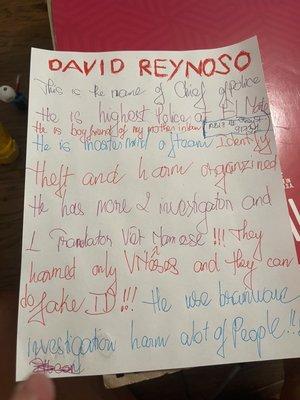 DAVID REYNOSO
This is the name of Chief of Police
He is highest Police
He is boyfriend of my mother inlaw
He is masterming of team Identity
theft and harm organzined
He has more 2 investigator and
1 Tranlator Việt Namese !!! They
harmed only and they can
do fake ID !!! He use brainwave
investigation harm alot of People !!!